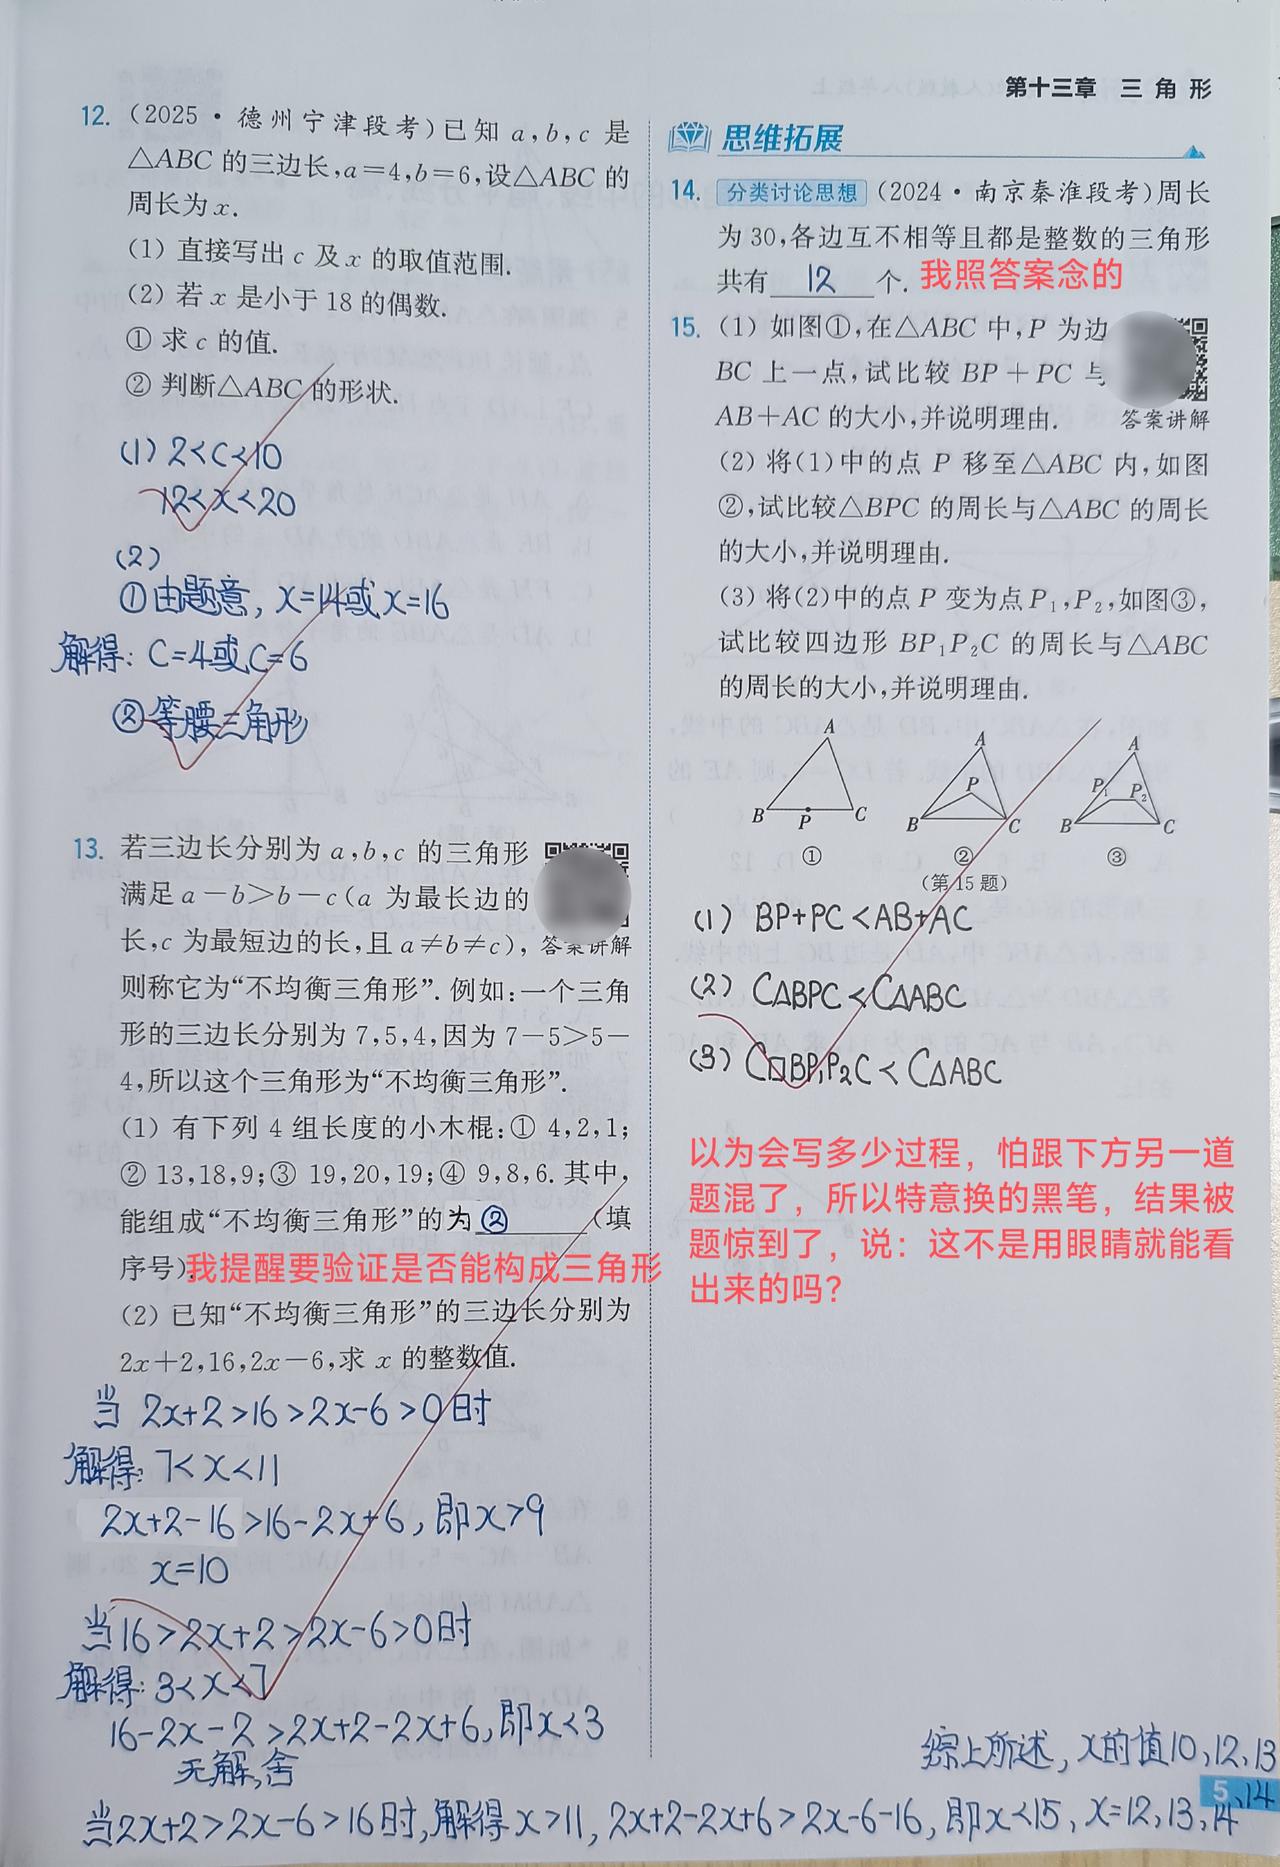 第十三章 三角形
12. (2025·德州宁津段考)已知a,b,c是
△ABC的三边长,a=4,b=6,设△ABC的
周长为x.
(1) 直接写出c及x的取值范围.
(2) 若x是小于18的偶数.
① 求c的值.
② 判断△ABC的形状.
(1) 2<c<10
12<x<20
(2)
①由题意, x=14或x=16
解得: C=4或C=6
②等腰三角形
13. 若三边长分别为a,b,c的三角形
满足a-b>b-c(a为最长边的
长,c为最短边的长,且a≠b≠c),
答案讲解
则称它为“不均衡三角形”.例如:一个三角
形的三边长分别为7,5,4,因为7-5>5-
4,所以这个三角形为“不均衡三角形”.
(1) 有下列4组长度的小木棍:① 4,2,1;
② 13,18,9;③ 19,20,19;④ 9,8,6.其中,
能组成“不均衡三角形”的为 ② (填
序号).
我提醒要验证是否能构成三角形
(2) 已知“不均衡三角形”的三边长分别为
2x+2,16,2x-6,求x的整数值.
当 2x+2>16>2x-6>0时
解得: 7<x<11
2x+2-16>16-2x+6, 即x>9
x=10
当16>2x+2>2x-6>0时
解得: 3<x<7
16-2x-2>2x+2-2x+6, 即x<3
无解,舍
当2x+2>2x-6>16时,解得x>11, 2x+2-2x+6>2x-6-16, 即x<15, x=12,13,14
思维拓展
14. 分类讨论思想 (2024·南京秦淮段考)周长
为30,各边互不相等且都是整数的三角形
共有 12 个.
我照答案念的
15. (1) 如图①,在△ABC中,P为边
BC上一点,试比较BP+PC与
AB+AC的大小,并说明理由.
答案讲解
(2) 将(1)中的点P移至△ABC内,如图
②,试比较△BPC的周长与△ABC的周长
的大小,并说明理由.
(3) 将(2)中的点P变为点P₁,P₂,如图③,
试比较四边形BP₁P₂C的周长与△ABC
的周长的大小,并说明理由.
A B P C
①
A P B C
②
A P₁ P₂ B C
③
(第15题)
(1) BP+PC<AB+AC
(2) C△BPC<C△ABC
(3) C□BP₁P₂C<C△ABC
以为会写多少过程，怕跟下方另一道
题混了，所以特意换的黑笔，结果被
题惊到了，说：这不是用眼睛就能看
出来的吗？
综上所述, x的值10,12,13
、14
5